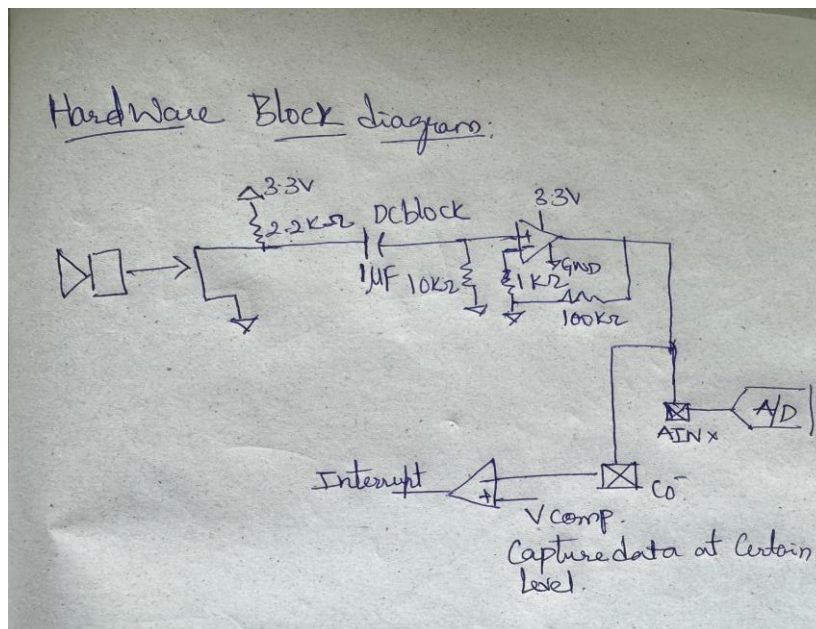 Hardware Block diagram:
3.3V
2.2KΩ
DC block
1μF
10KΩ
3.3V
+
-
GND
1KΩ
100KΩ
A/D
AINx
Interrupt
-
+
Co-
V comp.
Capture data at Certain
level.